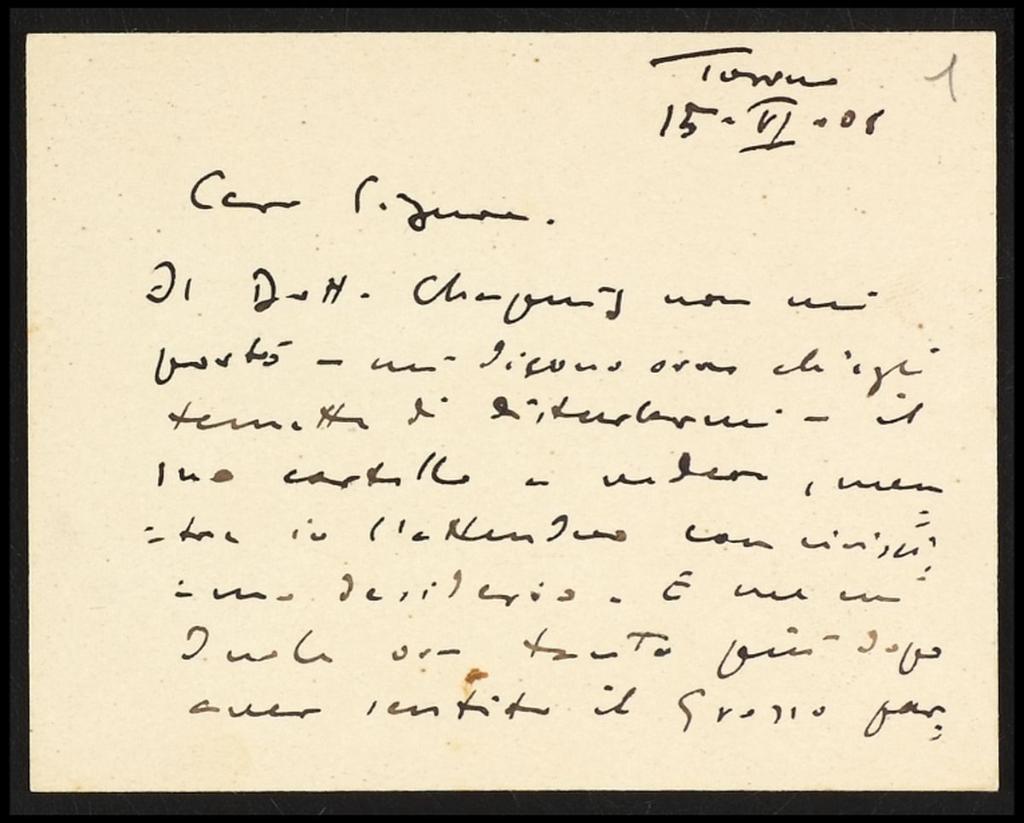 Torino 1
15-VI-08
Caro Signore.
Il Dott. Chapuis non mi
portò – mi dicono ora ch'egli
temette di disturbarmi – il
suo cartello a vedere, men
=tre io l'attendevo con viviss=
=imo desiderio. E me ne
duole ora tanto più dopo
aver sentito il Grosso par=